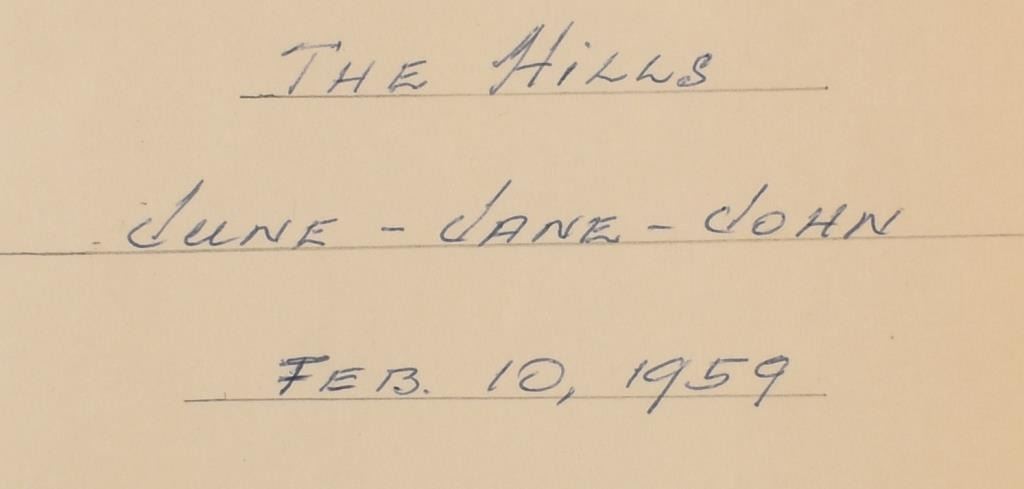 The Hills
June - Jane - John
Feb. 10, 1959